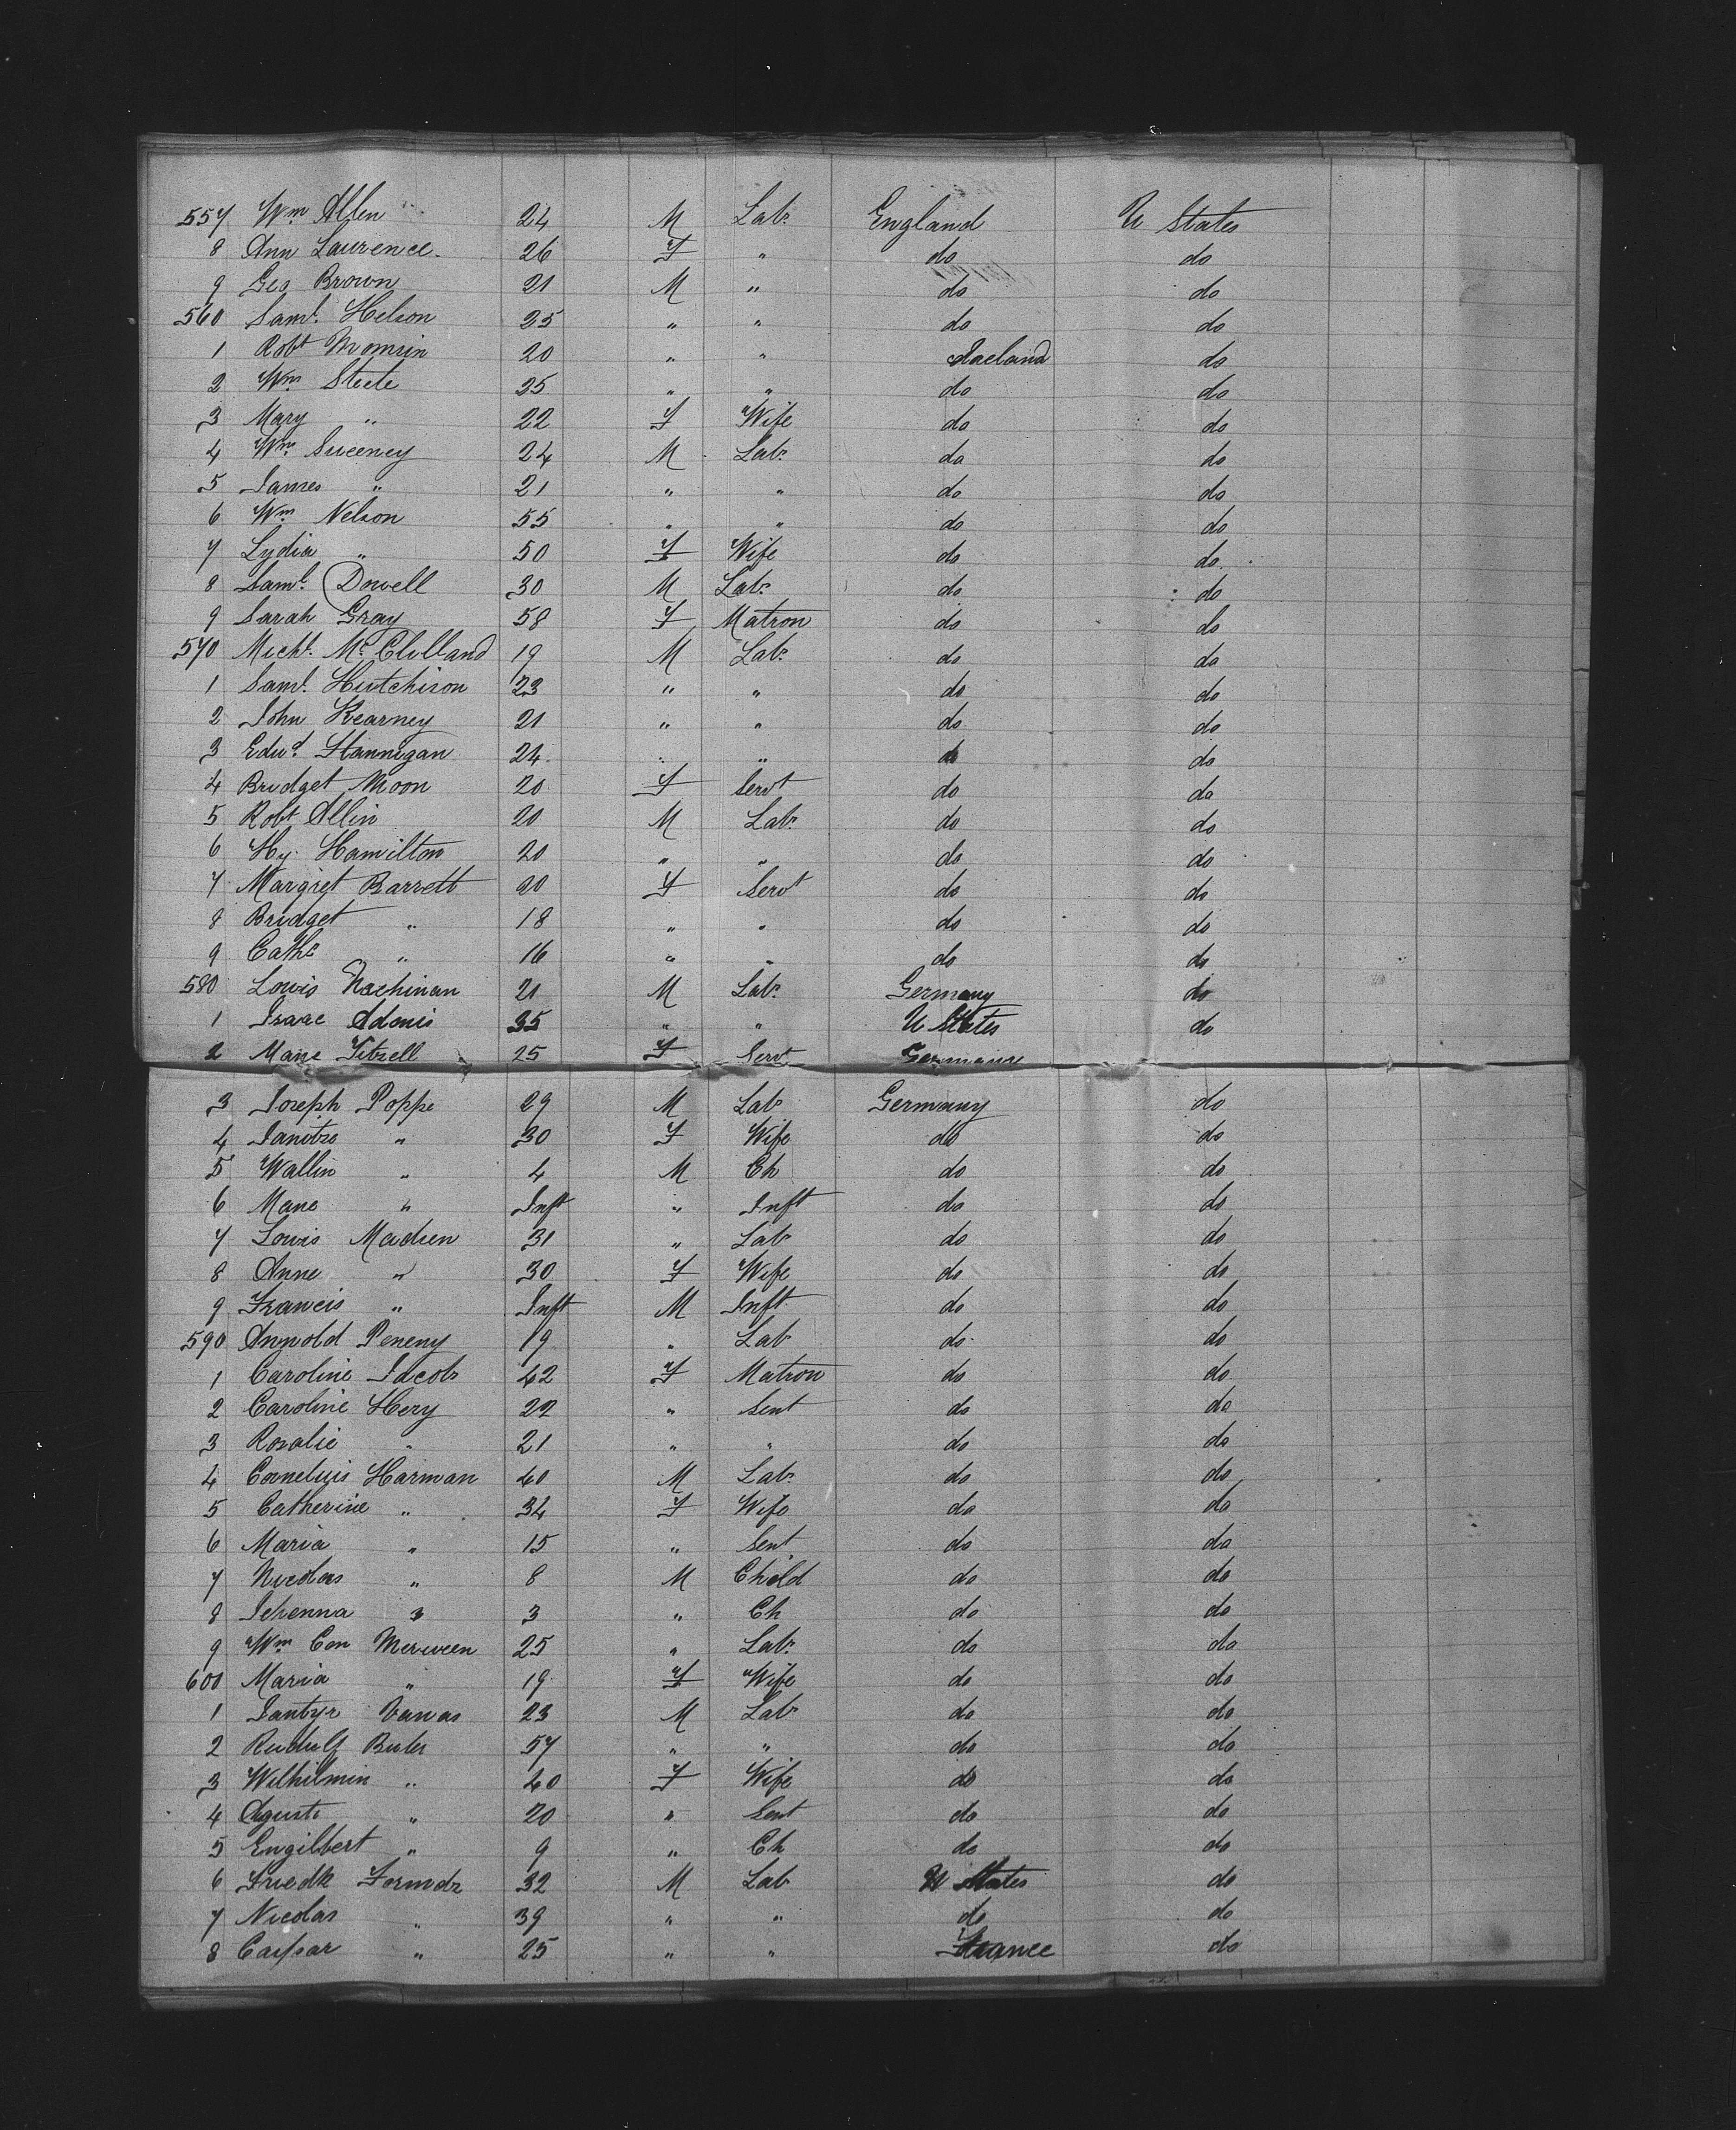 557 Wm Allen 24 M Labr England U States
8 Ann Laurence 26 F " do do
9 Geo Brown 21 M " do do
560 Saml. Helson 25 " " do do
1 Robt 20 " " Ireland do
2 Wm Steele 25 " " do do
3 Mary " 22 F Wife do do
4 Wm Sweeney 24 M Labr do do
5 James " 21 " " do do
6 Wm Nelson 55 " " do do
7 Lydia " 50 F Wife do do
8 Saml. Dowell 30 M Labr do do
9 Sarah Gray 58 F Matron do do
570 Michl. McClelland 19 M Labr do do
1 Saml. Hutchison 23 " " do do
2 John Kearney 21 " " do do
3 Edwd. Hannigan 24 " " do do
4 Bridget Moon 20 F Servt do do
5 Robt Allin 20 M Labr do do
6 Hy. Hamilton 20 " " do do
7 Margret Barrett 20 F Servt do do
8 Bridget " 18 " " do do
9 Cathe " 16 " " do do
580 Lowis Nachinan 21 M Labr Germany do
1 Isaac Adonis 35 " " U States do
2 25 F Servt Germany
3 Joseph Poppe 29 M Labr Germany do
4 " 30 F Wife do do
5 Wallin " 4 M Ch do do
6 Mane " Inft " Inft do do
7 Lowis Madsen 31 " Labr do do
8 Anne " 30 F Wife do do
9 Francis " Inft M Inft do do
590 Annold Peneny 19 " Lab do do
1 Caroline Jacobs 42 F Matron do do
2 Caroline Hery 22 " Sent do do
3 Rosalie " 21 " " do do
4 Cornelyis Harman 40 M Labr do do
5 Catherine " 34 F Wife do do
6 Maria " 15 " Sent do do
7 Nicolas " 8 M Child do do
8 Jehenna " 3 " Ch do do
9 Wm Con Merween 25 " Labr do do
600 Maria " 19 F Wife do do
1 Vanas 23 M Labr do do
2 Rudulf 57 " " do do
3 Wilhilmin " 40 F Wife do do
4 Aguste " 20 " Sent do do
5 Engilbert " 9 " Ch do do
6 Friedk 32 M Lab U States do
7 Nicolas " 39 " " do do
8 Caspar " 25 " " France do